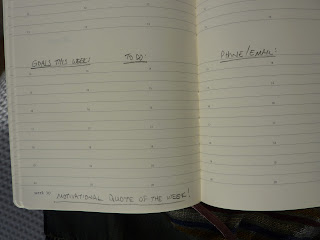 GOALS THIS WEEK:
TO DO:
PHONE/EMAIL:
MOTIVATIONAL QUOTE OF THE WEEK!